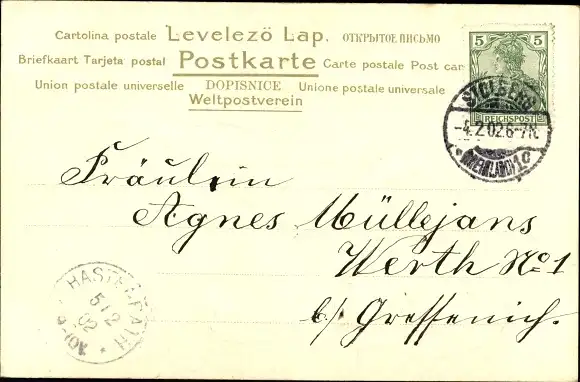 Cartolina postale Levelező Lap. ОТКРЫТОЕ ПИСЬМО
Briefkaart Tarjeta postal Postkarte Carte postale Post car
Union postale universelle DOPISNICE Unione postale universale
Weltpostverein
5 5
REICHSPOST
STOLBERG
-4.2.02.6-7N.
Fräulein
Agnes Müllejans
Werth No 1
b/ Gressenich.
HASTENRATH
5/2
02